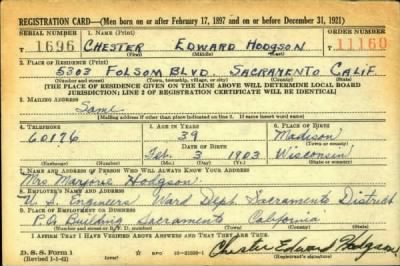 REGISTRATION CARD—(Men born on or after February 17, 1897 and on or before December 31, 1921)
SERIAL NUMBER 1. NAME (Print) ORDER NUMBER
T 1696 CHESTER EDWARD HODGSON T 11160
(First) (Middle) (Last)
2. PLACE OF RESIDENCE (Print)
5303 FOLSOM BLVD. SACRAMENTO CALIF
(Number and street) (Town, township, village, or city) (County) (State)
[THE PLACE OF RESIDENCE GIVEN ON THE LINE ABOVE WILL DETERMINE LOCAL BOARD
JURISDICTION; LINE 2 OF REGISTRATION CERTIFICATE WILL BE IDENTICAL]
3. MAILING ADDRESS
Same
[Mailing address if other than place indicated on line 2. If same insert word same]
4. TELEPHONE 5. AGE IN YEARS 6. PLACE OF BIRTH
60176 39 Madison
DATE OF BIRTH (Town or county)
Feb. 3 1903 Wisconsin
(Exchange) (Number) (Mo.) (Day) (Yr.) (State or country)
7. NAME AND ADDRESS OF PERSON WHO WILL ALWAYS KNOW YOUR ADDRESS
Mrs Marjorie Hodgson
8. EMPLOYER'S NAME AND ADDRESS
U. S. Engineers Ward Dept. Sacramento District
9. PLACE OF EMPLOYMENT OR BUSINESS
P.O. Building Sacramento California
(Number and street or R. F. D. number) (Town) (County) (State)
I AFFIRM THAT I HAVE VERIFIED ABOVE ANSWERS AND THAT THEY ARE TRUE.
D. S. S. Form 1 GPO
(Revised 1-1-42) Chester Edward Hodgson